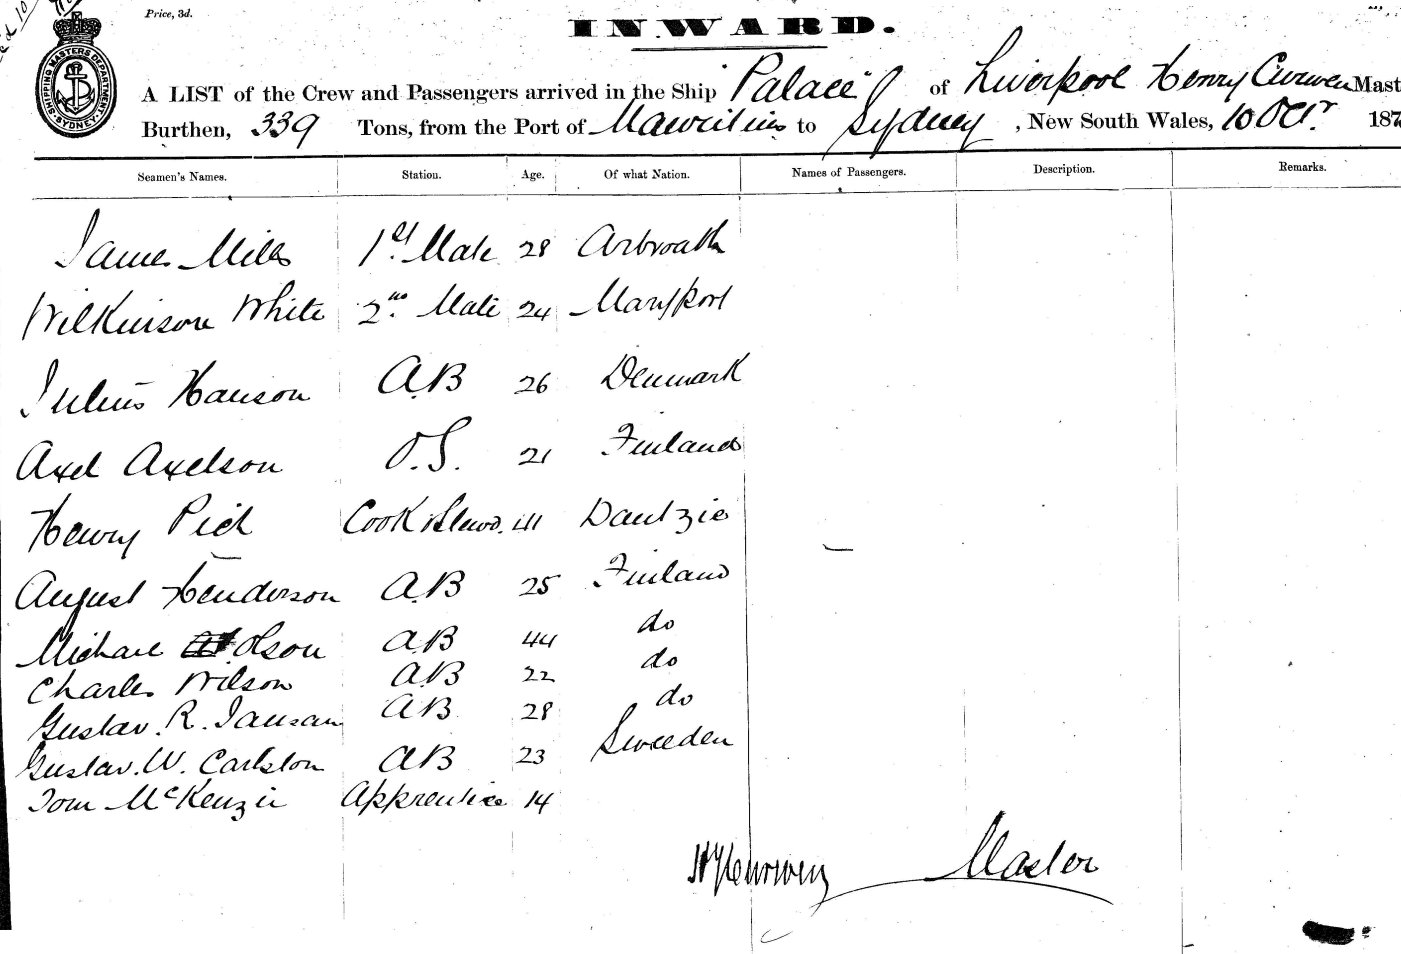 Price, 3d.
INWARD.
SHIPPING MASTERS DEPARTMENT SYDNEY
A LIST of the Crew and Passengers arrived in the Ship "Palace" of Liverpool Henry Curwen Mast
Burthen, 339 Tons, from the Port of Mauritius to Sydney, New South Wales, 10 Octr 187
Seamen's Names. Station. Age. Of what Nation. Names of Passengers. Description. Remarks.
James Mills 1st Mate 28 Arbroath
Wilkinson White 2nd Mate 24 Maryport
Julius Hanson A.B 26 Denmark
Axel Axelson O.S. 21 Finland
Henry Pich Cook & Stewd. 41 Dantzic
August Henderson A.B 25 Finland
Michael Olson A.B 44 do
Charles Wilson A.B 22 do
Gustav. R. Jansan A.B 28 do
Gustav. W. Carlston A.B 23 Sweeden
Tom McKenzie Apprentice 14
Curwen Master